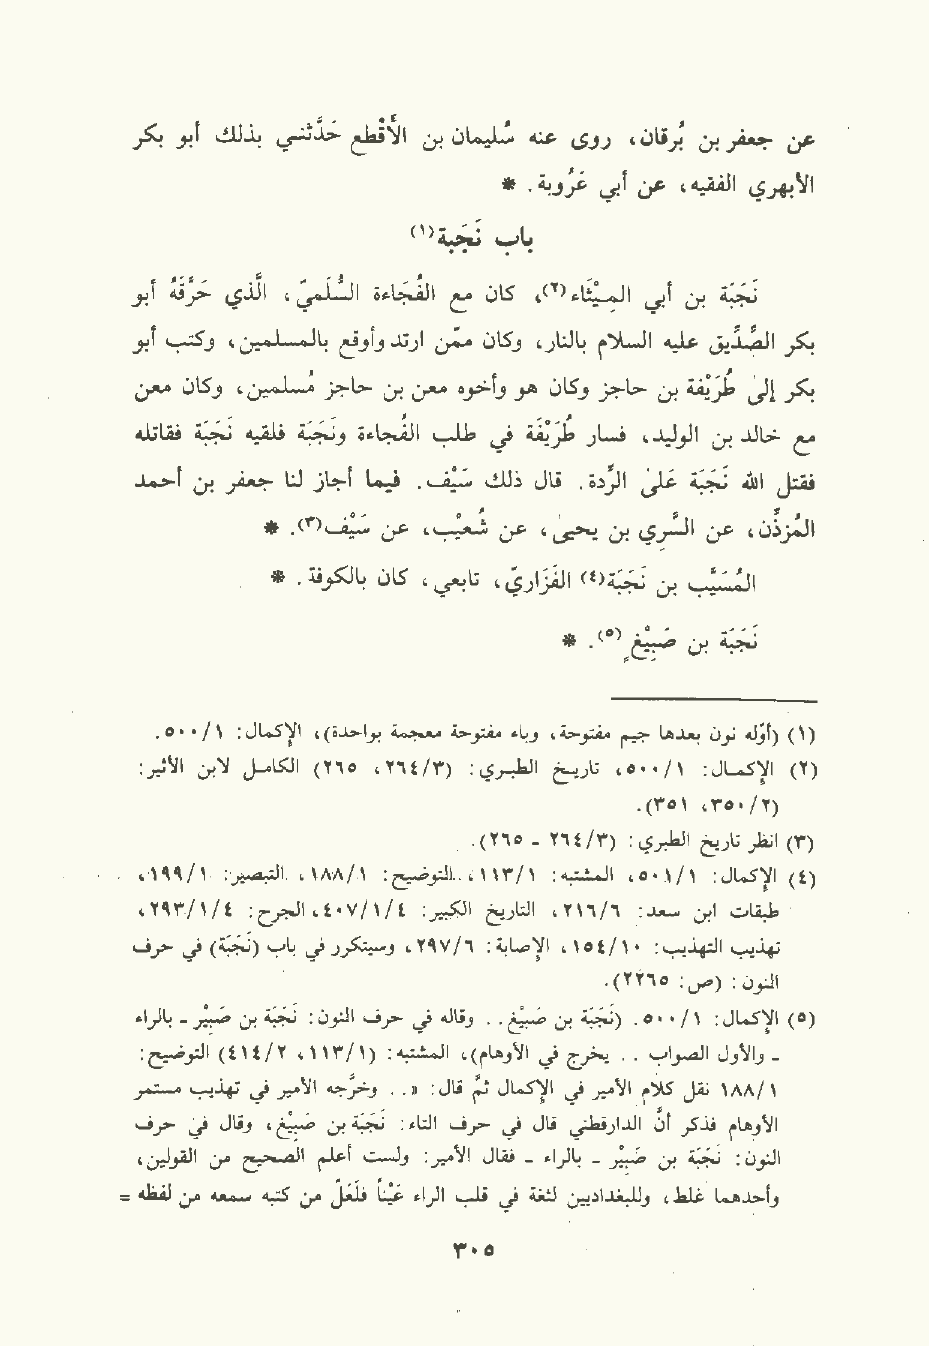 عن جعفر بن بُرقان، روى عنه سُليمان بن الأقْطع حَدَّثنـي بذلك أبو بكر
الأبهري الفقيه، عن أبي عَرُوبة. *
باب نَجَبة(١)
نَجَبَة بن أبي المِيْثاء(٢)، كان مع الفُجَاءة السُّلَميّ، الَّذي حَرَّقَهُ أبو
بكر الصِّدِّيق عليه السلام بالنار، وكان ممّن ارتد وأوقع بالمسلمين، وكتب أبو
بكر إلى طُرَيْفة بن حاجز وكان هو وأخوه معن بن حاجز مُسلمين، وكان معن
مع خالد بن الوليد، فسار طُرَيْفَة في طلب الفُجاءة ونَجَبَة فلقيه نَجَبَة فقاتله
فقتل الله نَجَبَة علىٰ الرِّدة. قال ذلك سَيْف. فيما أجاز لنا جعفر بن أحمد
المُؤذِّن، عن السَّرِي بن يحيىٰ، عن شُعَيْب، عن سَيْف(٣). *
المُسَيَّب بن نَجَبَة(٤) الفَزَاريّ، تابعي، كان بالكوفة. *
نَجَبَة بن صَبِيْغٍ(٥). *
(١) (أوّله نون بعدها جيم مفتوحة، وباء مفتوحة معجمة بواحدة)، الإكمال: ٥٠٠/١.
(٢) الإكمال: ٥٠٠/١، تاريخ الطبري: (٢٦٤/٣، ٢٦٥) الكامل لابن الأثير:
(٣٥٠/٢، ٣٥١).
(٣) انظر تاريخ الطبري: (٢٦٤/٣ - ٢٦٥).
(٤) الإكمال: ٥٠١/١، المشتبه: ١١٣/١، التوضيح: ١٨٨/١، التبصير: ١٩٩/١،
طبقات ابن سعد: ٢١٦/٦، التاريخ الكبير: ٤٠٧/١/٤، الجرح: ٢٩٣/١/٤،
تهذيب التهذيب: ١٥٤/١٠، الإصابة: ٢٩٧/٦، وسيتكرر في باب (نَجَبَة) في حرف
النون: (ص: ٢٢٦٥).
(٥) الإكمال: ٥٠٠/١. (نَجَبَة بن صَبِيْغ. . وقاله في حرف النون: نَجَبَة بن صَبِيْر - بالراء
- والأول الصواب . . يخرج في الأوهام)، المشتبه: (١١٣/١، ٤١٤/٢) التوضيح:
١٨٨/١ نقل كلام الأمير في الإكمال ثم قال: «. . وخرّجه الأمير في تهذيب مستمر
الأوهام فذكر أنّ الدارقطني قال في حرف التاء: نَجَبَة بن صَبِيْغ، وقال في حرف
النون: نَجَبَة بن صَبِيْر - بالراء - فقال الأمير: ولست أعلم الصحيح من القولين،
وأحدهما غلط، وللبغداديين لثغة في قلب الراء غيْناً فلَعَلّ من كتبه سمعه من لفظه =
٣٠٥